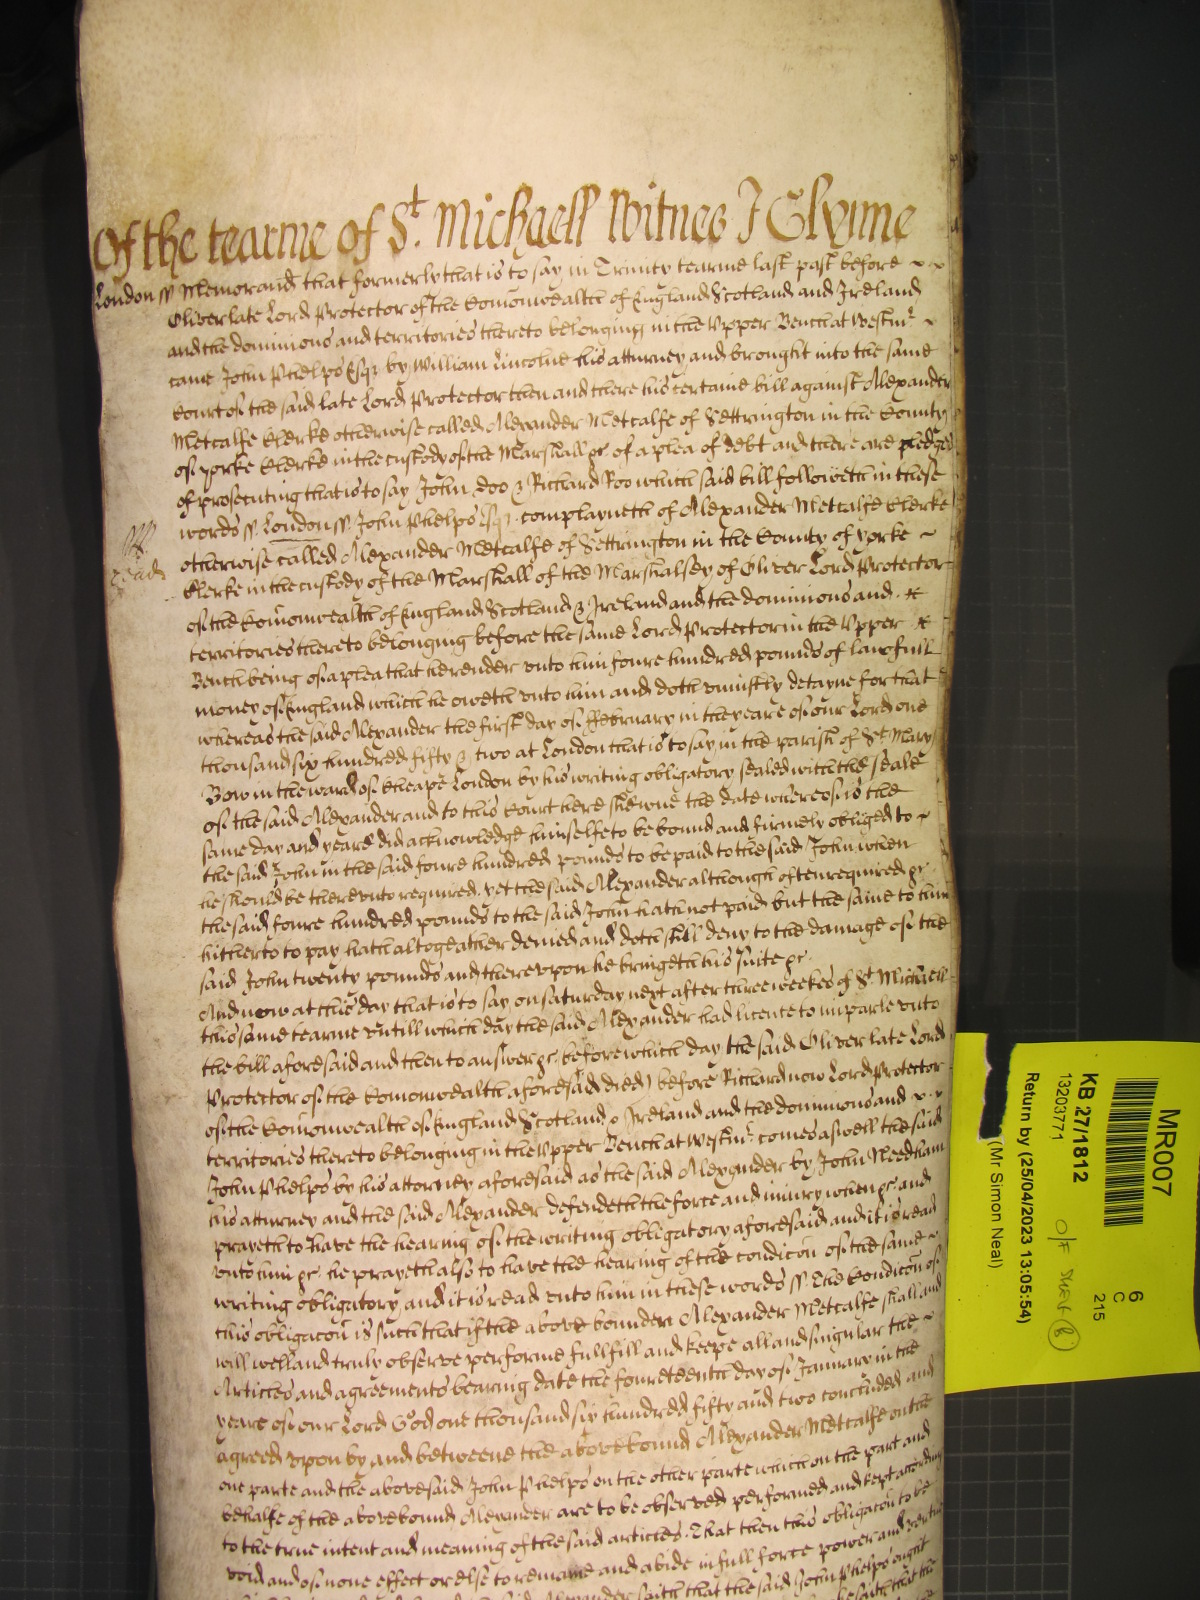 Of the tearme of St. Michaell Witnes J Glynne
London ss Memorand that formerly that is to say in Trinity tearme last past before
Oliver late Lord Protector of the Comonwealth of England Scotland and Ireland
and the dominions and territories thereto belonging in the Upper Bench at Westmr
came John Phelps Esqr by William Lincolne his atturney and brought into the same
Court of the said late Lord Protector then and there his certaine bill against Alexander
Metcalfe Clerke otherwise called Alexander Metcalfe of Settrington in the County
of Yorke Clerke in the custody of the Marshall &c of a plea of debt and there are pledges
of prosecuting that is to say John Doo & Richard Roo which said bill followeth in these
words ss London ss John Phelps Esqr complayneth of Alexander Metcalfe Clerke
otherwise called Alexander Metcalfe of Settrington in the County of Yorke
Clerke in the custody of the Marshall of the Marshalsey of Oliver Lord Protector
of the Comonwealth of England Scotland & Ireland and the dominions and
territories thereto belonging before the same Lord Protector in the Upper
Bench being of a plea that he render unto him foure hundred pounds of lawfull
money of England which he oweth unto him and doth uniustly detayne for that
whereas the said Alexander the first day of February in the yeare of our Lord one
thousand six hundred fifty & two at London that is to say in the parish of St Mary
Bow in the ward of Cheape London by his writing obligatory sealed with the seale
of the said Alexander and to this Court here shewne the date whereof is the
same day and yeare did acknowledge himselfe to be bound and firmely obliged to
the said John in the said foure hundred pounds to be paid to the said John when
he should be thereunto required. yet the said Alexander although often required &c
the said foure hundred pounds to the said John hath not paid but the same to him
hitherto to pay hath altogeather denied and doth still deny to the damage of the
said John twenty pounds and thereupon he bringeth his suite &c.
And now at this day that is to say on saturday next after three weekes of St Michaell
this same tearme untill which day the said Alexander had licence to imparle unto
the bill aforesaid and then to answer &c. before which day the said Oliver late Lord
Protector of the Comonwealth aforesaid died) before Richard now Lord Protector
of the Comonwealth of England Scotland & Ireland and the dominions and
territories thereto belonging in the Upper Bench at Westmr. comes aswell the said
John Phelps by his attorney aforesaid as the said Alexander by John Needham
his atturney and the said Alexander defendeth the force and iniury when &c and
prayeth to have the hearing of the writing obligatory aforesaid and it is read
unto him &c. he prayeth also to have the hearing of the condicon of the same
writing obligatory and it is read unto him in these words ss The Condicon of
this obligacon is such that if the above bounden Alexander Metcalfe shall and
will well and truly observe performe fullfill and keepe all and singular the
Articles and agreements bearing date the foureteenth day of January in the
yeare of our Lord God one thousand six hundred fifty and two concluded and
agreed upon by and betweene the abovebound Alexander Metcalfe on the
one parte and the abovesaid John Phelps on the other parte which on the part and
behalfe of the abovebound Alexander are to be observed performed and kept according
to the true intent and meaning of the said articles. That then this obligacon to be
void and of none effect or else to remaine and abide in full force power and vertue
Alexander saith that the said John Phelps ought
MR007
6
C
215
KB 27/1812
13203771
O/F
Return by (25/04/2023 13:05:54)
(Mr Simon Neal)